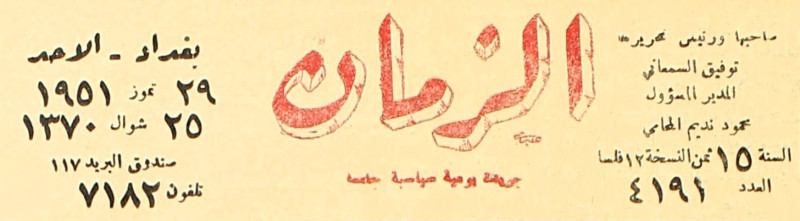 صاحبها ورئيس تحريرها
توفيق السمعاني
المدير المسؤول
محمود نديم المحامي
السنة ١٥ ثمن النسخة ١٢ فلسا
العدد ٤١٩١
الزمان
جريدة يومية سياسية جامعة
بغداد - الاحد
٢٩ تموز ١٩٥١
٢٥ شوال ١٣٧٠
صندوق البريد ١١٧
تلفون ٧١٨٢